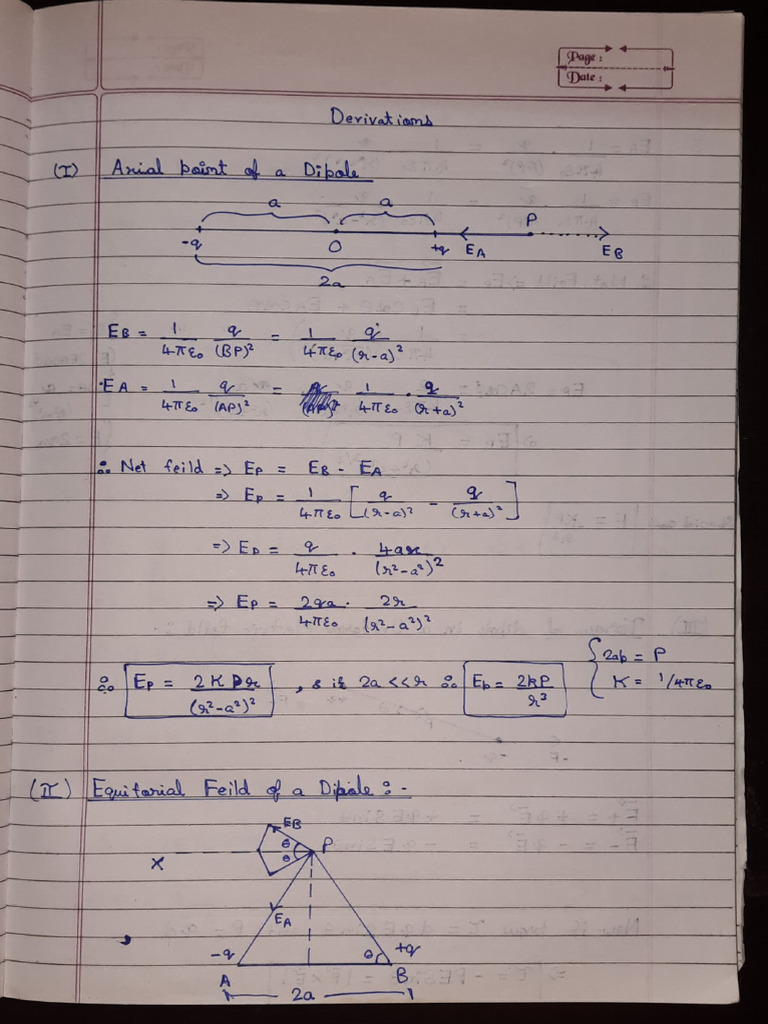 Page :
Date :
Derivations
(I) Axial point of a Dipole
a a
-q O +q E_A P E_B
2a
E_B = 1/4πε₀ q/(BP)² = 1/4πε₀ q/(r-a)²
E_A = 1/4πε₀ q/(AP)² = 1/4πε₀ · q/(r+a)²
∴ Net feild => E_P = E_B - E_A
=> E_P = 1/4πε₀ [ q/(r-a)² - q/(r+a)² ]
=> E_P = q/4πε₀ · 4ar/(r²-a²)²
=> E_P = 2qa/4πε₀ · 2r/(r²-a²)²
{ 2ap = P
∴ E_P = 2KPr/(r²-a²)² , & if 2a << r ∴ E_p = 2KP/r³ { K = 1/4πε₀
(II) Equitorial Feild of a Dipole :-
E_B
θ P
X θ
E_A
-q θ +q
A B
2a